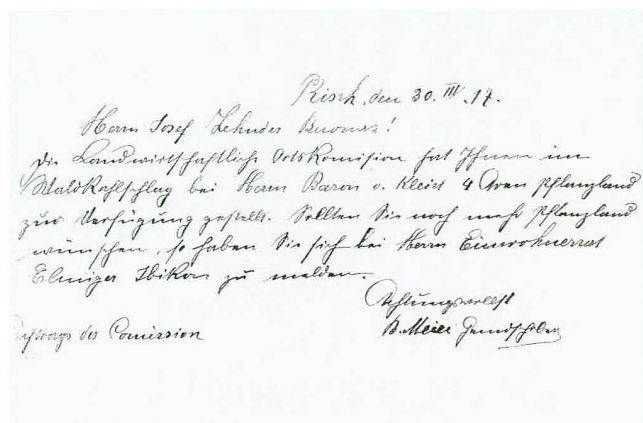 Risch, den 30. III. 17.
Herrn Josef Zehnder Buonas!
Die Landwirtschaftliche Ortskomision hat Ihnen im
Waldkahlschlag bei Herrn Baron v. Kleist 4 Aren Pflanzland
zur Verfügung gestellt. Sollten Sie noch mehr Pflanzland
wünschen, so haben Sie sich bei Herrn Einwohnerrat
Elmiger Ibikon zu melden.
Achtungsvollst
B. Meier
der Comission